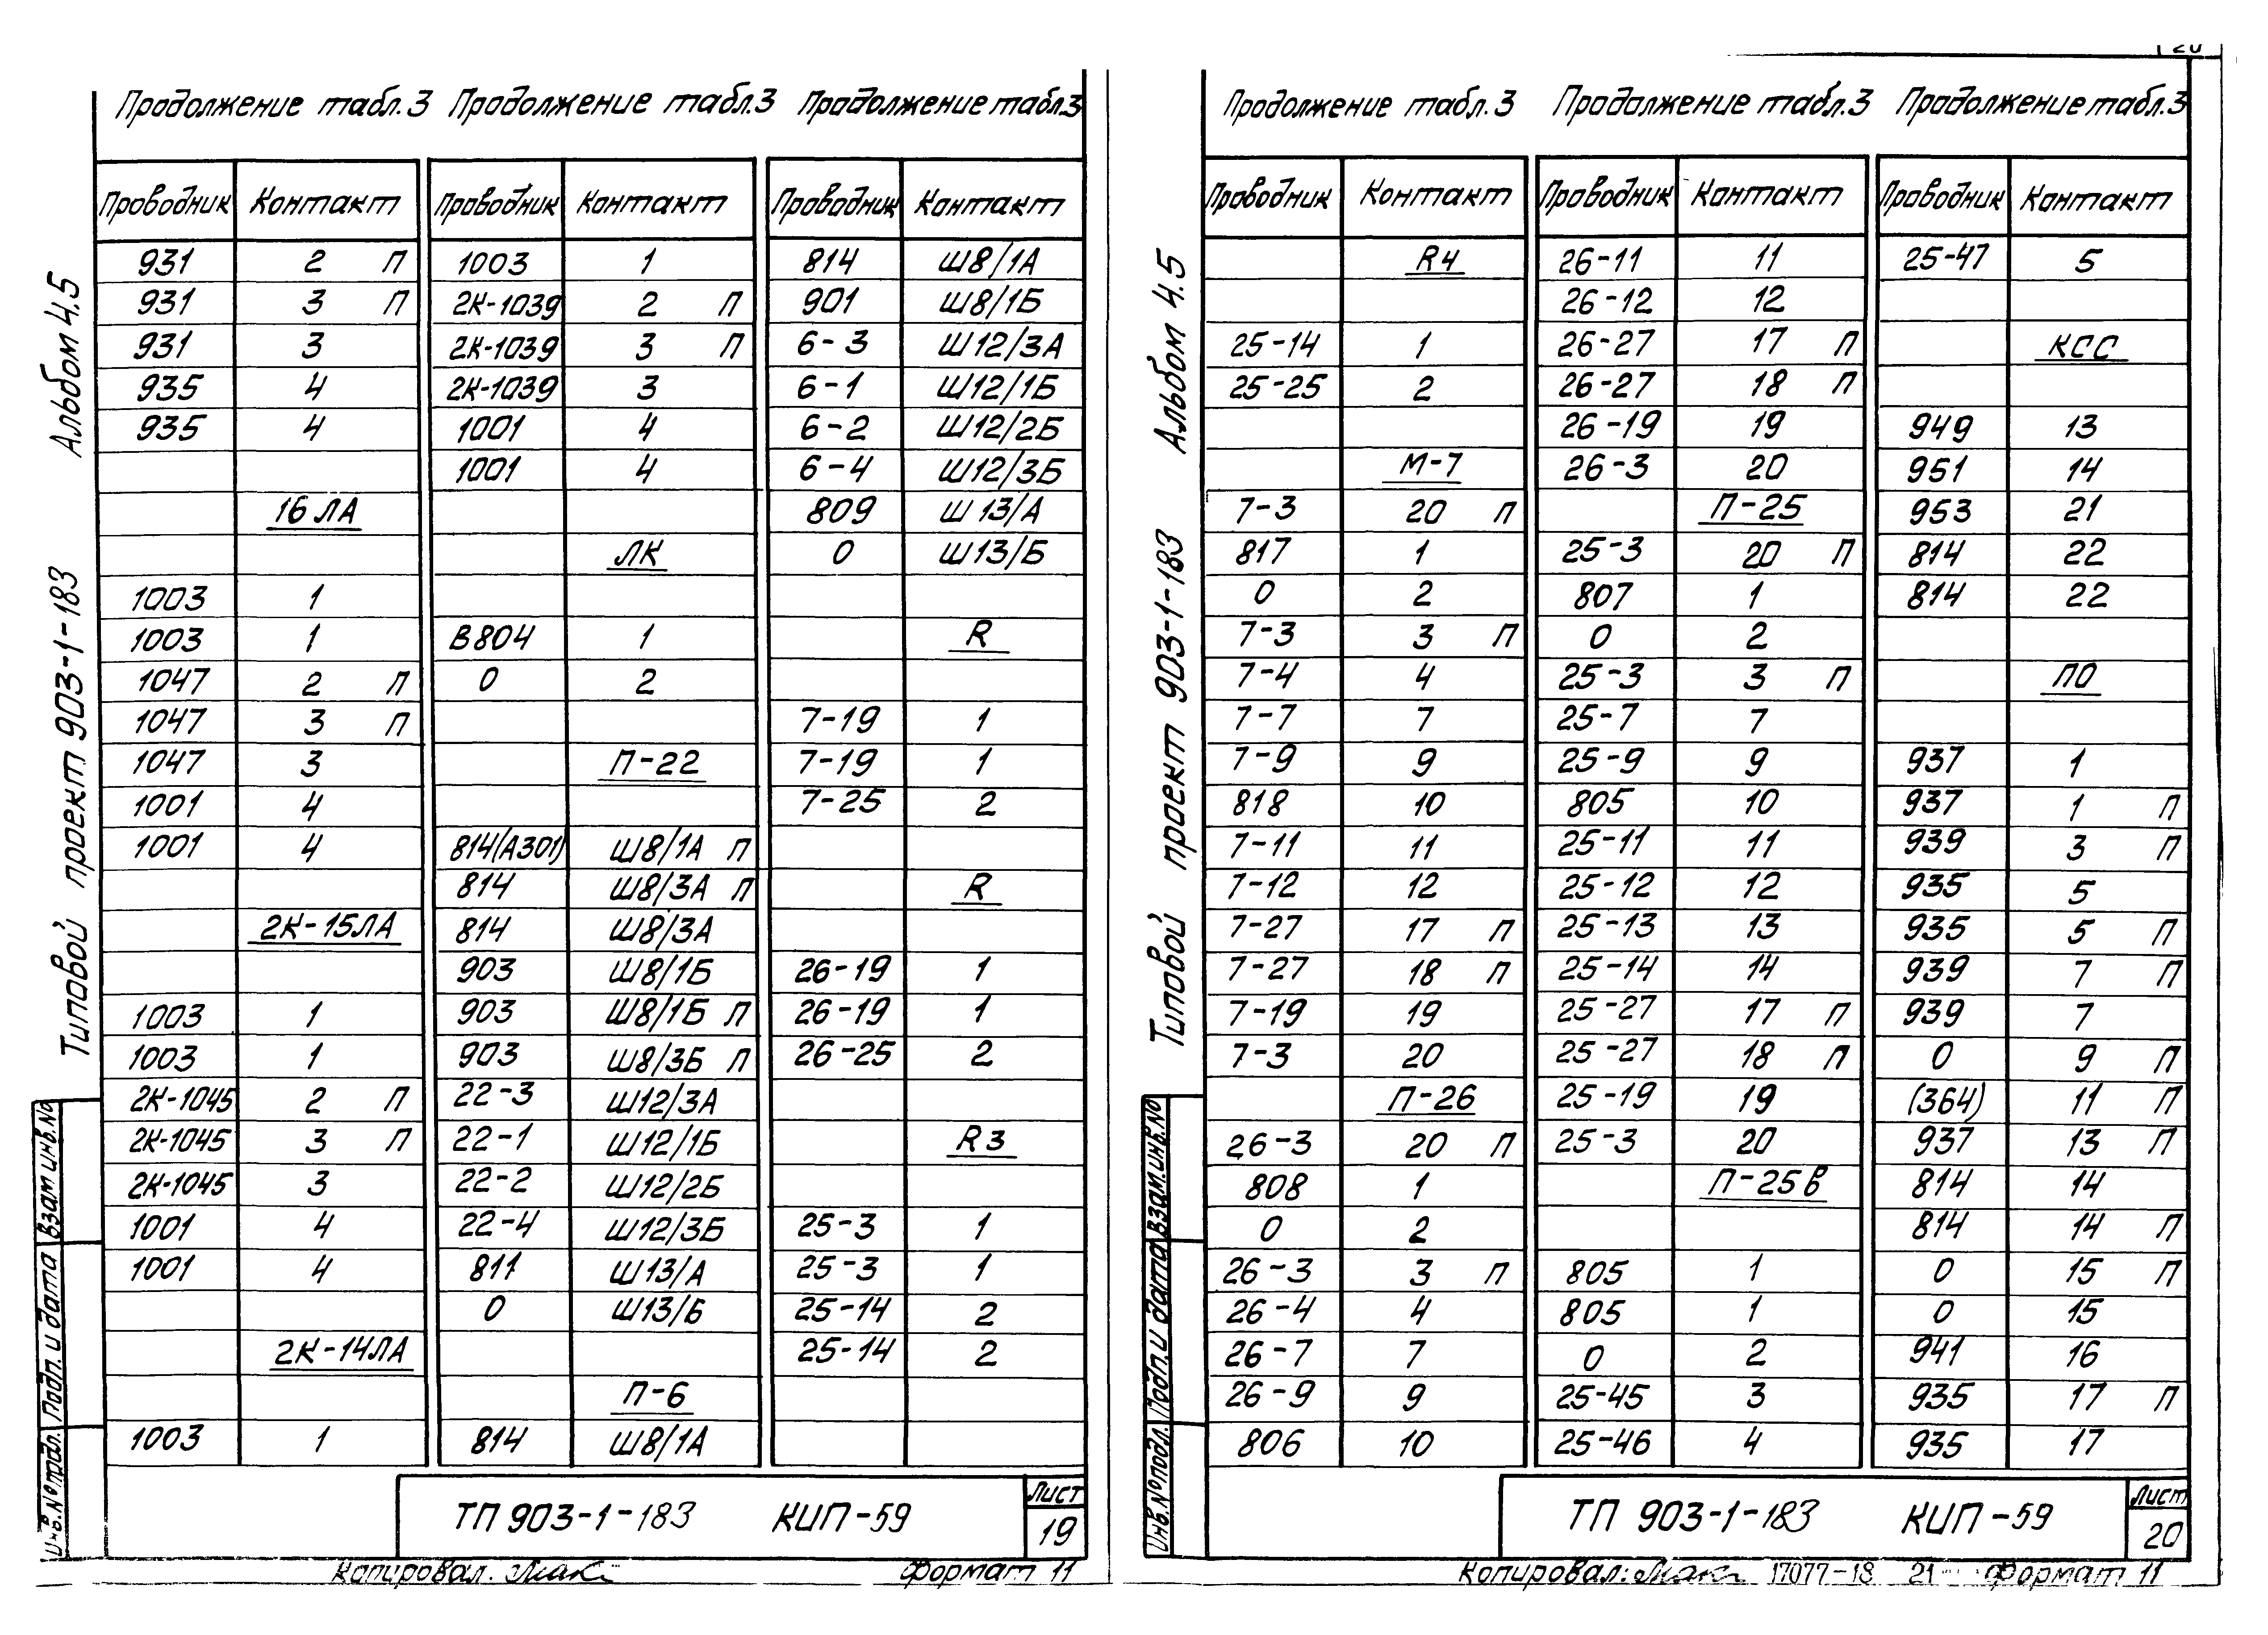 20
Продолжение табл.3 Продолжение табл.3 Продолжение табл.3
Проводник Контакт Проводник Контакт Проводник Контакт
931 2 П 1003 1 814 Ш8/1А
931 3 П 2К-1039 2 П 901 Ш8/1Б
931 3 2К-1039 3 П 6-3 Ш12/3А
935 4 2К-1039 3 6-1 Ш12/1Б
935 4 1001 4 6-2 Ш12/2Б
1001 4 6-4 Ш12/3Б
16ЛА 809 Ш13/А
ЛК 0 Ш13/Б
1003 1
1003 1 В804 1 R
1047 2 П 0 2
1047 3 П 7-19 1
1047 3 П-22 7-19 1
1001 4 7-25 2
1001 4 814(А301) Ш8/1А П
814 Ш8/3А П R
2К-15ЛА 814 Ш8/3А
903 Ш8/1Б 26-19 1
1003 1 903 Ш8/1Б П 26-19 1
1003 1 903 Ш8/3Б П 26-25 2
2К-1045 2 П 22-3 Ш12/3А
2К-1045 3 П 22-1 Ш12/1Б R3
2К-1045 3 22-2 Ш12/2Б
1001 4 22-4 Ш12/3Б 25-3 1
1001 4 811 Ш13/А 25-3 1
0 Ш13/Б 25-14 2
2К-14ЛА 25-14 2
П-6
1003 1 814 Ш8/1А
ТП 903-1-183 КИП-59
Лист
19
Копировал. Формат 11
Альбом 4.5
Типовой проект 903-1-183
Взам инв.№
Подп. и дата
Инв.№ подл.
Продолжение табл.3 Продолжение табл.3 Продолжение табл.3
Проводник Контакт Проводник Контакт Проводник Контакт
R4 26-11 11 25-47 5
26-12 12
25-14 1 26-27 17 П КСС
25-25 2 26-27 18 П
26-19 19 949 13
М-7 26-3 20 951 14
7-3 20 П П-25 953 21
817 1 25-3 20 П 814 22
0 2 807 1 814 22
7-3 3 П 0 2
7-4 4 25-3 3 П ПО
7-7 7 25-7 7
7-9 9 25-9 9 937 1
818 10 805 10 937 1 П
7-11 11 25-11 11 939 3 П
7-12 12 25-12 12 935 5
7-27 17 П 25-13 13 935 5 П
7-27 18 П 25-14 14 939 7 П
7-19 19 25-27 17 П 939 7
7-3 20 25-27 18 П 0 9 П
П-26 25-19 19 (364) 11 П
26-3 20 П 25-3 20 937 13 П
808 1 П-25В 814 14
0 2 814 14 П
26-3 3 П 805 1 0 15 П
26-4 4 805 1 0 15
26-7 7 0 2 941 16
26-9 9 25-45 3 935 17 П
806 10 25-46 4 935 17
ТП 903-1-183 КИП-59
Лист
20
Копировал: 17077-18 21 Формат 11
Альбом 4.5
Типовой проект 903-1-183
Взам.инв.№
Подп. и дата
Инв.№ подл.